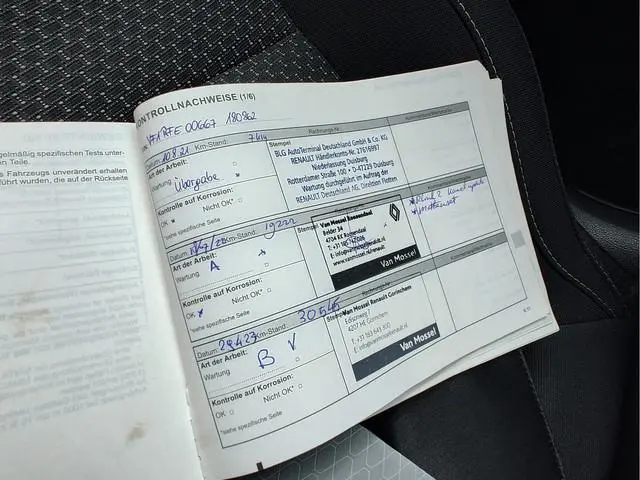 gelmäßig spezifischen Tests unter-
en Teile.
s Fahrzeugs unverändert erhalten
führt wurden, die auf der Rückseite
KONTROLLNACHWEISE (1/6)
VF1RFE 00667 180962
Datum: 10.8.21 Km-Stand:
Rechnungs-Nr.
Art der Arbeit:
Stempel
BLG AutoTerminal Deutschland GmbH & Co. KG
RENAULT Händlerkonto-Nr. 27616997
Niederlassung Duisburg
Rotterdamer Straße 100 • D-47229 Duisburg
Wartung durchgeführt im Auftrag der
RENAULT Deutschland AG, Direktion Flotten
Wartung
Übergabe
Kontrolle auf Korrosion:
OK
Nicht OK*
*siehe spezifische Seite
Datum: Km-Stand: 19222
Art der Arbeit:
Stempel
Van Mossel Roosendaal
Belder 34
4704 RK Roosendaal
www.vanmossel.nl/renault
Van Mossel
Wartung
A
Kontrolle auf Korrosion:
OK
Nicht OK*
*siehe spezifische Seite
Datum: 29.4.23 Km-Stand: 30545
Rechnungs-Nr.
Art der Arbeit:
Stempel
Van Mossel Renault Gorinchem
Edisonweg
4207 HE Gorinchem
Van Mossel
Wartung
B V
Kontrolle auf Korrosion:
OK
Nicht OK*
*siehe spezifische Seite